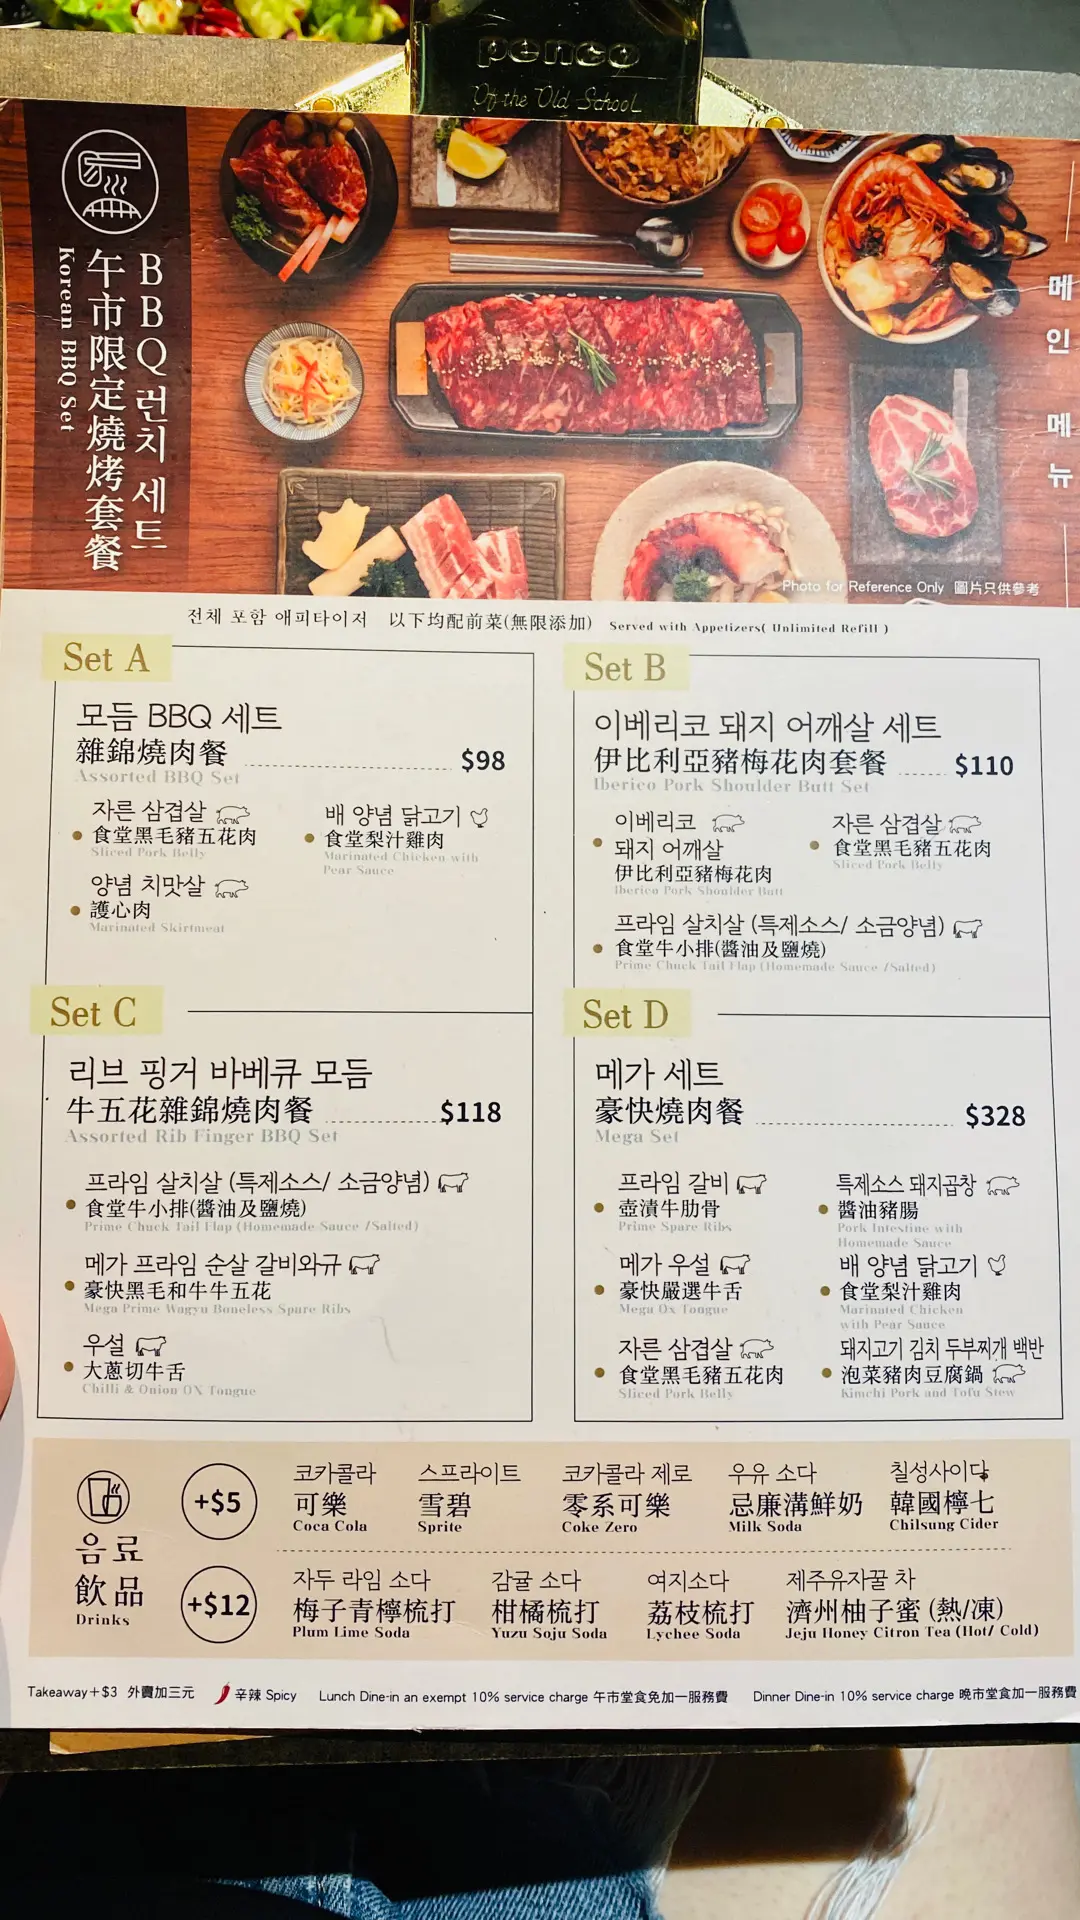 penco
Of the Old School
BBQ런치 세트
午市限定燒烤套餐
Korean BBQ Set
메인 메뉴
Photo for Reference Only 圖片只供參考
전체 포함 애피타이저 以下均配前菜(無限添加) Served with Appetizers( Unlimited Refill )
Set A
모듬 BBQ 세트
雜錦燒肉餐 $98
Assorted BBQ Set
자른 삼겹살
食堂黑毛豬五花肉
Sliced Pork Belly
배 양념 닭고기
食堂梨汁雞肉
Marinated Chicken with
Pear Sauce
양념 치맛살
護心肉
Marinated Skirtmeat
Set B
이베리코 돼지 어깨살 세트
伊比利亞豬梅花肉套餐 $110
Iberico Pork Shoulder Butt Set
이베리코
돼지 어깨살
伊比利亞豬梅花肉
Iberico Pork Shoulder Butt
자른 삼겹살
食堂黑毛豬五花肉
Sliced Pork Belly
프라임 살치살 (특제소스/ 소금양념)
食堂牛小排(醬油及鹽燒)
Prime Chuck Tail Flap (Homemade Sauce /Salted)
Set C
리브 핑거 바베큐 모듬
牛五花雜錦燒肉餐 $118
Assorted Rib Finger BBQ Set
프라임 살치살 (특제소스/ 소금양념)
食堂牛小排(醬油及鹽燒)
Prime Chuck Tail Flap (Homemade Sauce /Salted)
메가 프라임 순살 갈비와규
豪快黑毛和牛牛五花
Mega Prime Wagyu Boneless Spare Ribs
우설
大蔥切牛舌
Chilli & Onion OX Tongue
Set D
메가 세트
豪快燒肉餐 $328
Mega Set
프라임 갈비
壺漬牛肋骨
Prime Spare Ribs
특제소스 돼지곱창
醬油豬腸
Pork Intestine with
Homemade Sauce
메가 우설
豪快嚴選牛舌
Mega Ox Tongue
배 양념 닭고기
食堂梨汁雞肉
Marinated Chicken
with Pear Sauce
자른 삼겹살
食堂黑毛豬五花肉
Sliced Pork Belly
돼지고기 김치 두부찌개 백반
泡菜豬肉豆腐鍋
Kimchi Pork and Tofu Stew
음료
飲品
Drinks
+$5
코카콜라
可樂
Coca Cola
스프라이트
雪碧
Sprite
코카콜라 제로
零系可樂
Coke Zero
우유 소다
忌廉溝鮮奶
Milk Soda
칠성사이다
韓國檸七
Chilsung Cider
+$12
자두 라임 소다
梅子青檸梳打
Plum Lime Soda
감귤 소다
柑橘梳打
Yuzu Soju Soda
여지소다
荔枝梳打
Lychee Soda
제주유자꿀 차
濟州柚子蜜 (熱/凍)
Jeju Honey Citron Tea (Hot/ Cold)
Takeaway+$3 外賣加三元 辛辣 Spicy Lunch Dine-in an exempt 10% service charge 午市堂食免加一服務費 Dinner Dine-in 10% service charge 晚市堂食加一服務費